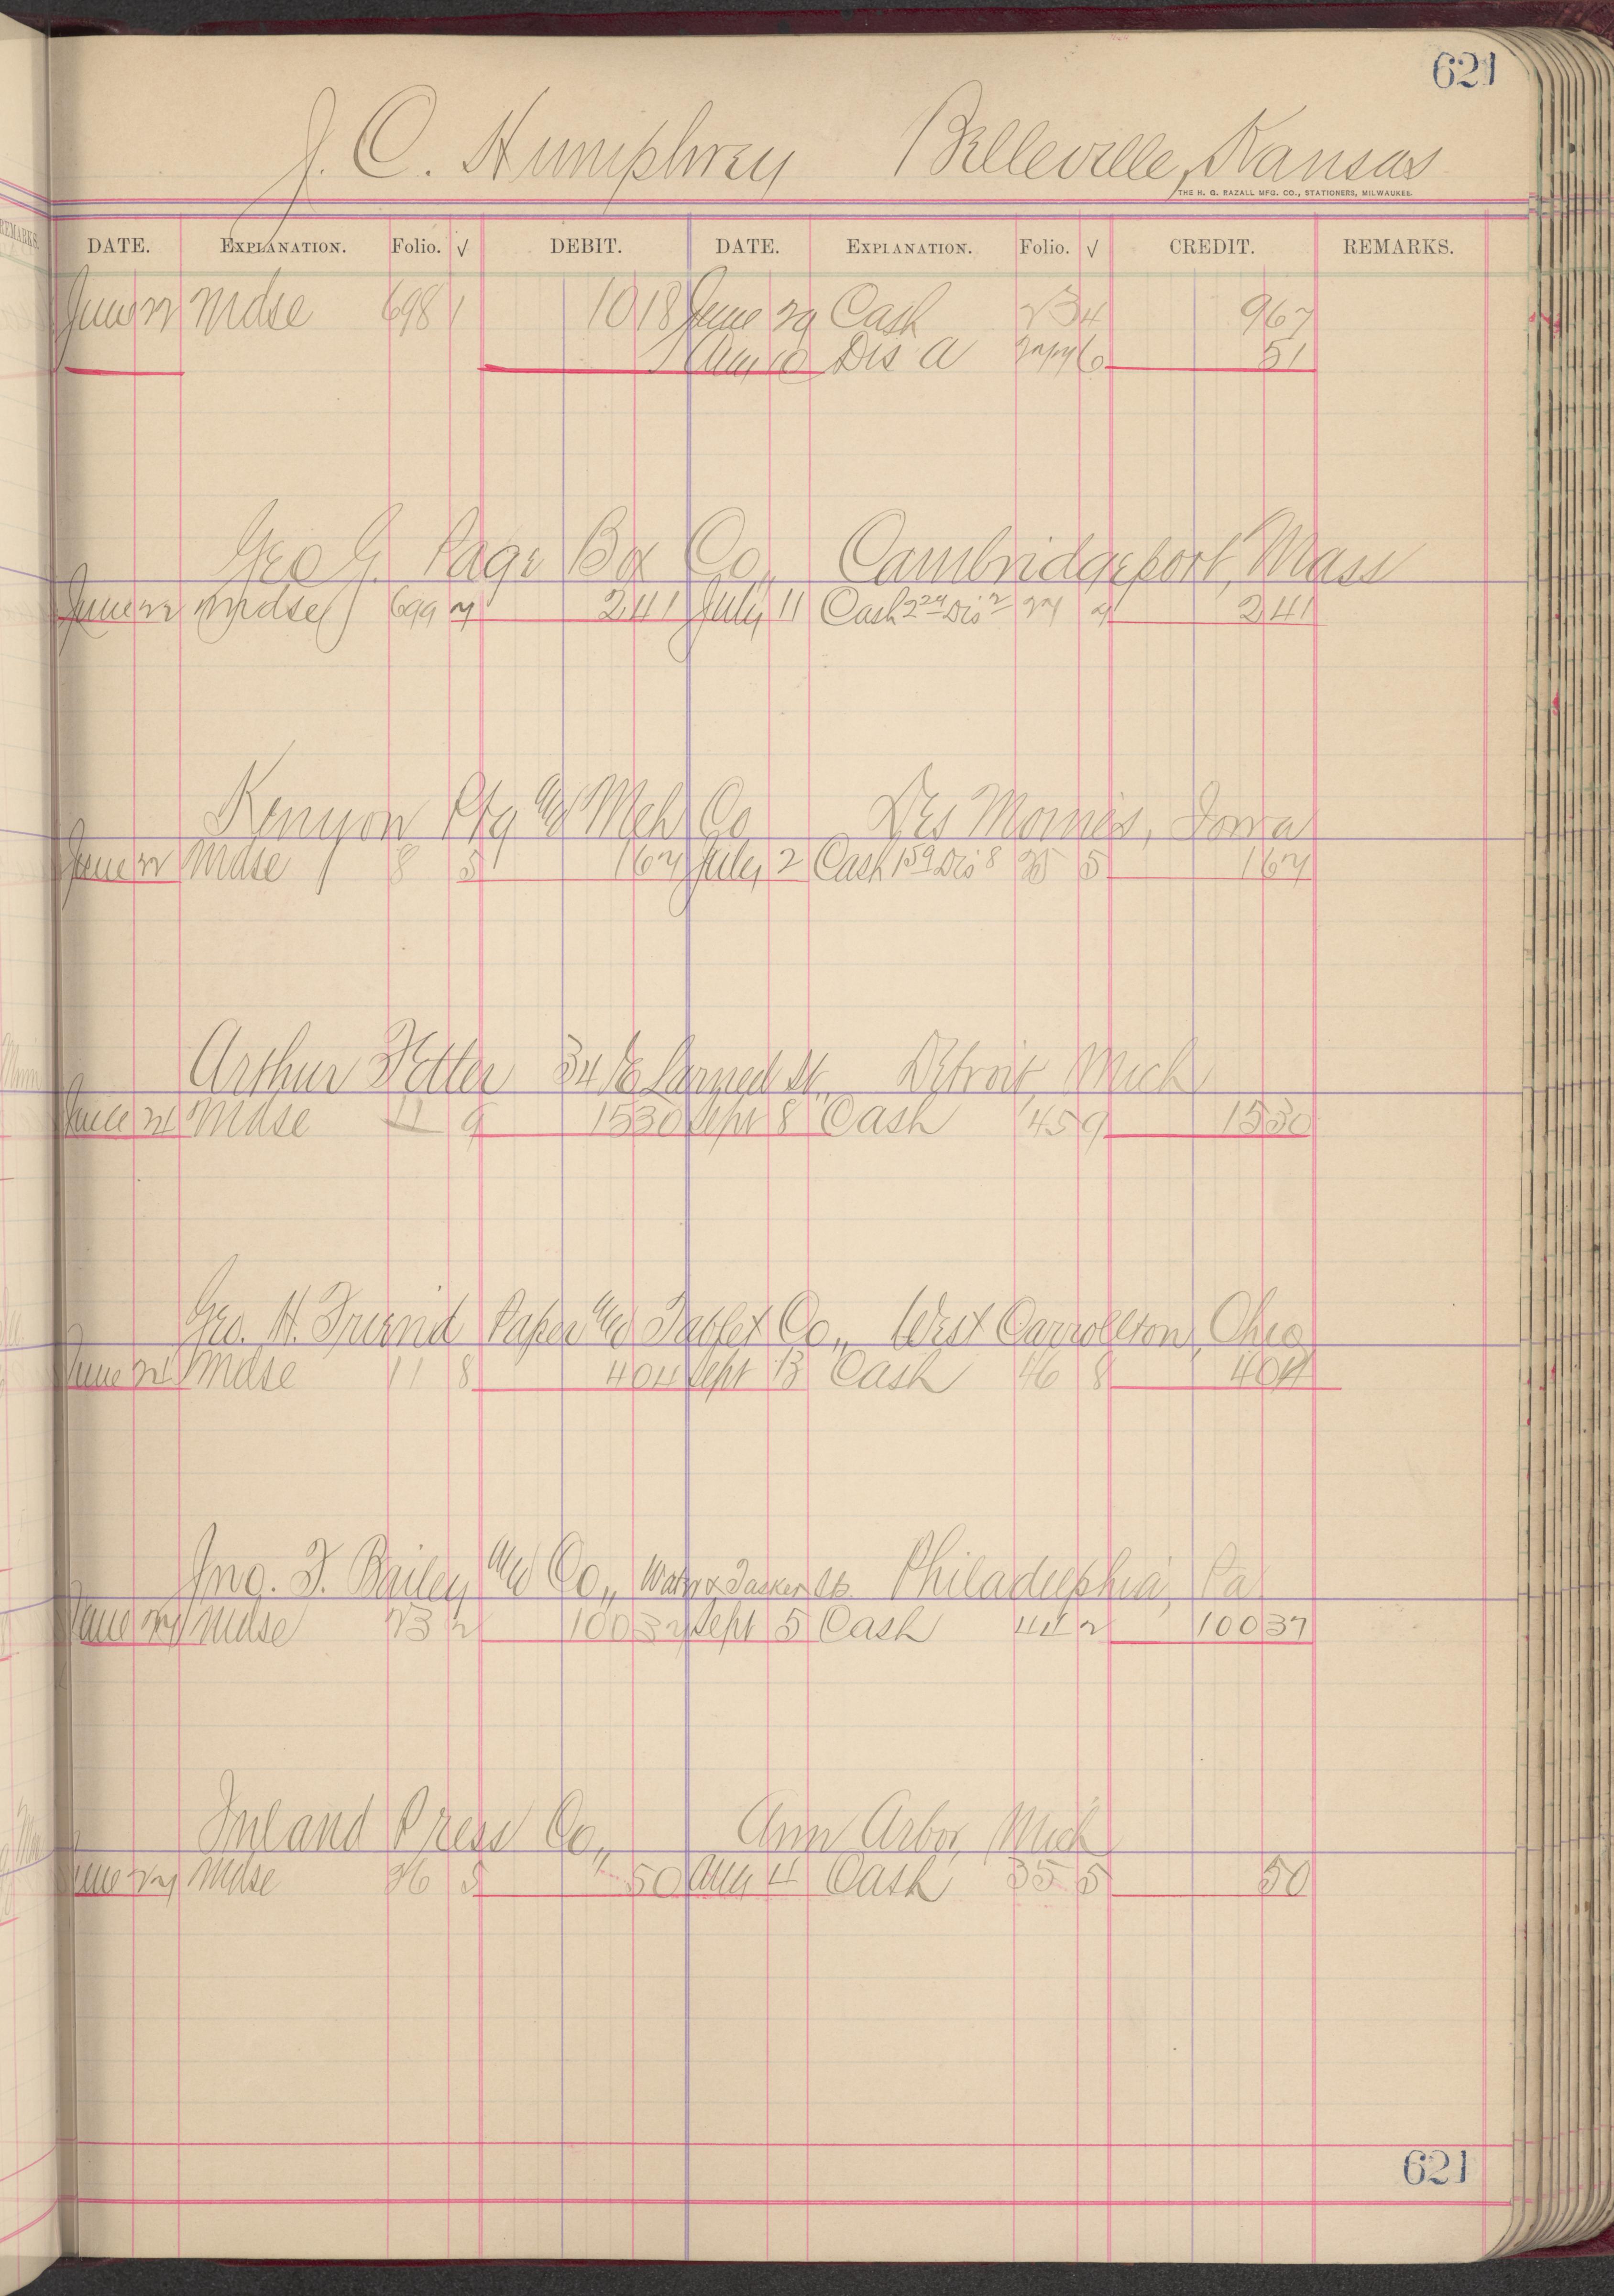 621
J. C. Humphrey Belleville, Kansas
THE H. G. RAZALL MFG. CO., STATIONERS, MILWAUKEE.
REMARKS.
DATE. EXPLANATION. Folio. √ DEBIT. DATE. EXPLANATION. Folio. √ CREDIT. REMARKS.
June 22 Mdse 698 1 10 18 June 29 Cash 23 4 9 67
Aug 10 Dis a 6 51
Geo G. Page Box Co., Cambridgeport, Mass
June 22 Mdse 699 7 2 41 July 11 Cash 2 29 Dis 2 27 7 2 41
Kenyon Ptg & Mch Co Des Moines, Iowa
June 22 Mdse 8 5 1 67 July 2 Cash 1 59 Dis 8 25 5 1 67
Arthur Fetter 34 E Larned St., Detroit, Mich
June 24 Mdse 11 9 15 30 Sept 8 Cash 45 9 15 30
Geo. H. Friend Paper & Tablet Co., West Carrollton, Ohio
June 24 Mdse 11 8 4 04 Sept 13 Cash 46 8 4 04
Jno. T. Bailey & Co., Water & Tasker Sts. Philadelphia, Pa
June 27 Mdse 23 2 100 37 Sept 5 Cash 44 2 100 37
Inland Press Co., Ann Arbor, Mich
June 27 Mdse 26 5 50 Aug 4 Cash 35 5 50
621